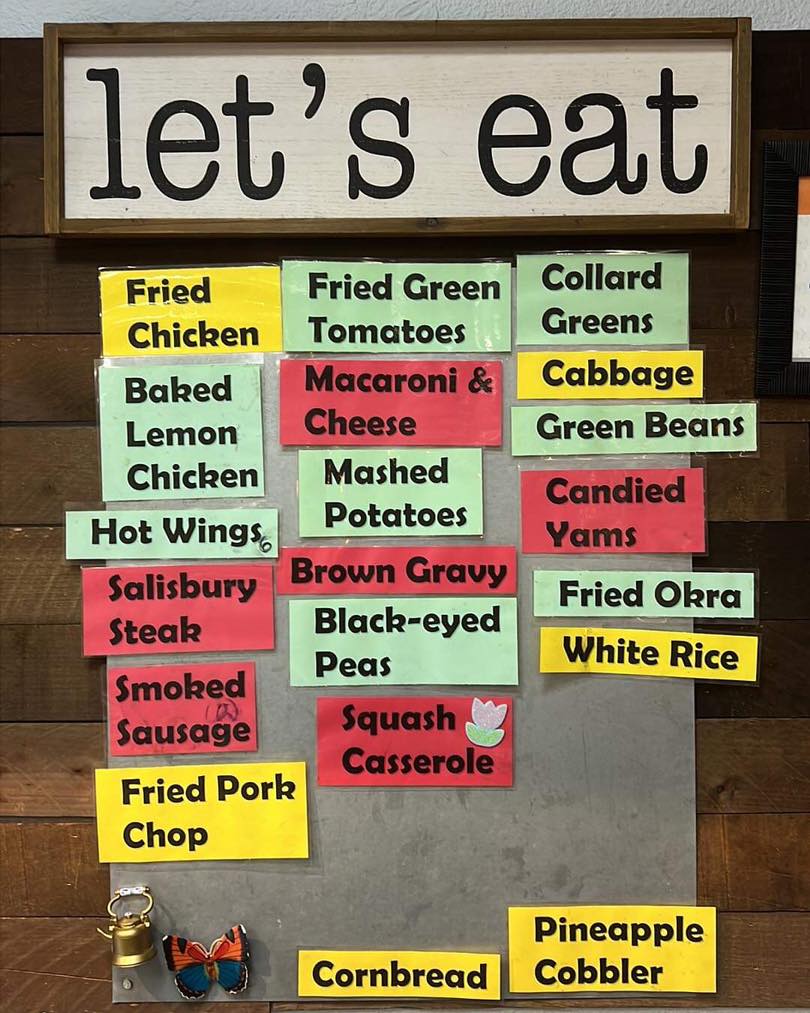 let's eat
Fried
Chicken
Baked
Lemon
Chicken
Hot Wings 6
Salisbury
Steak
Smoked
Sausage
Fried Pork
Chop
Fried Green
Tomatoes
Macaroni &
Cheese
Mashed
Potatoes
Brown Gravy
Black-eyed
Peas
Squash
Casserole
Cornbread
Collard
Greens
Cabbage
Green Beans
Candied
Yams
Fried Okra
White Rice
Pineapple
Cobbler